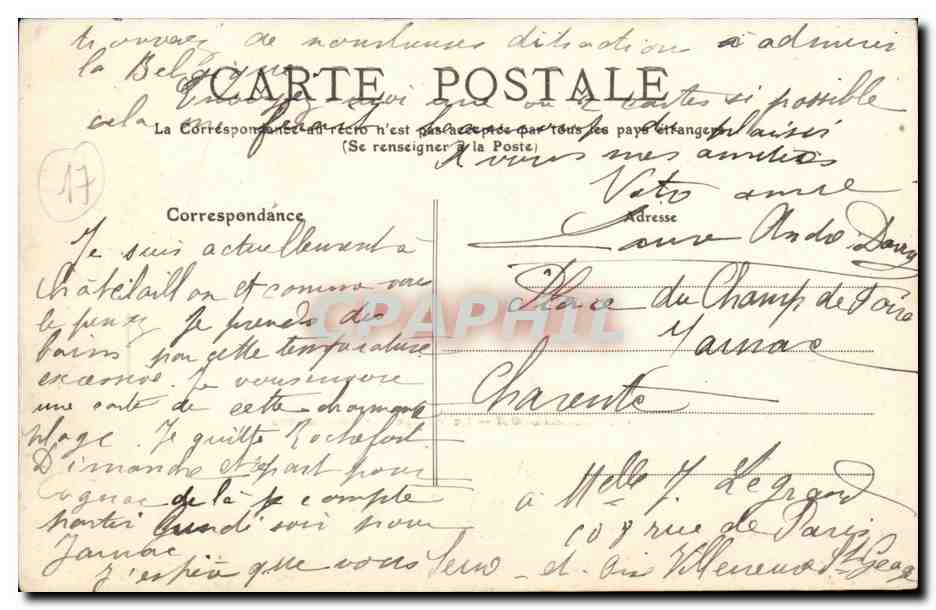 trouverez de nombreuses ditractions à admirer
la Belgique
CARTE POSTALE
Envoyez moi que ou 2 cartes si possible
cela me ferait beaucoup de plaisir
La Correspondance au recto n'est pas acceptée par tous les pays étrangers
(Se renseigner à la Poste)
A vous mes amitiés
17
Votre amie
Correspondance
Adresse
Je suis actuellement à
Châtelaillon et comme vous
le pensez je prends des
bains par cette température
excessive. Je vous envoie
une carte de cette charmante
plage. Je quitte Rochefort
Dimanche et part pour
Cognac de là je compte
partir lundi soir pour
Jarnac
J'espère que vous
CPAPHIL
André
Place du Champ de Foire
Jarnac
Charente
à Melle J. Legrand
108 rue de Paris
Villeneuve St Georges
Seine - et - Oise